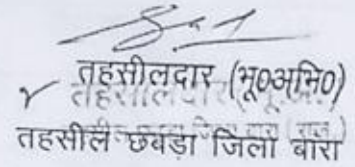 तहसीलदार (भू०अभि०)
तहसील छबड़ा जिला बारां